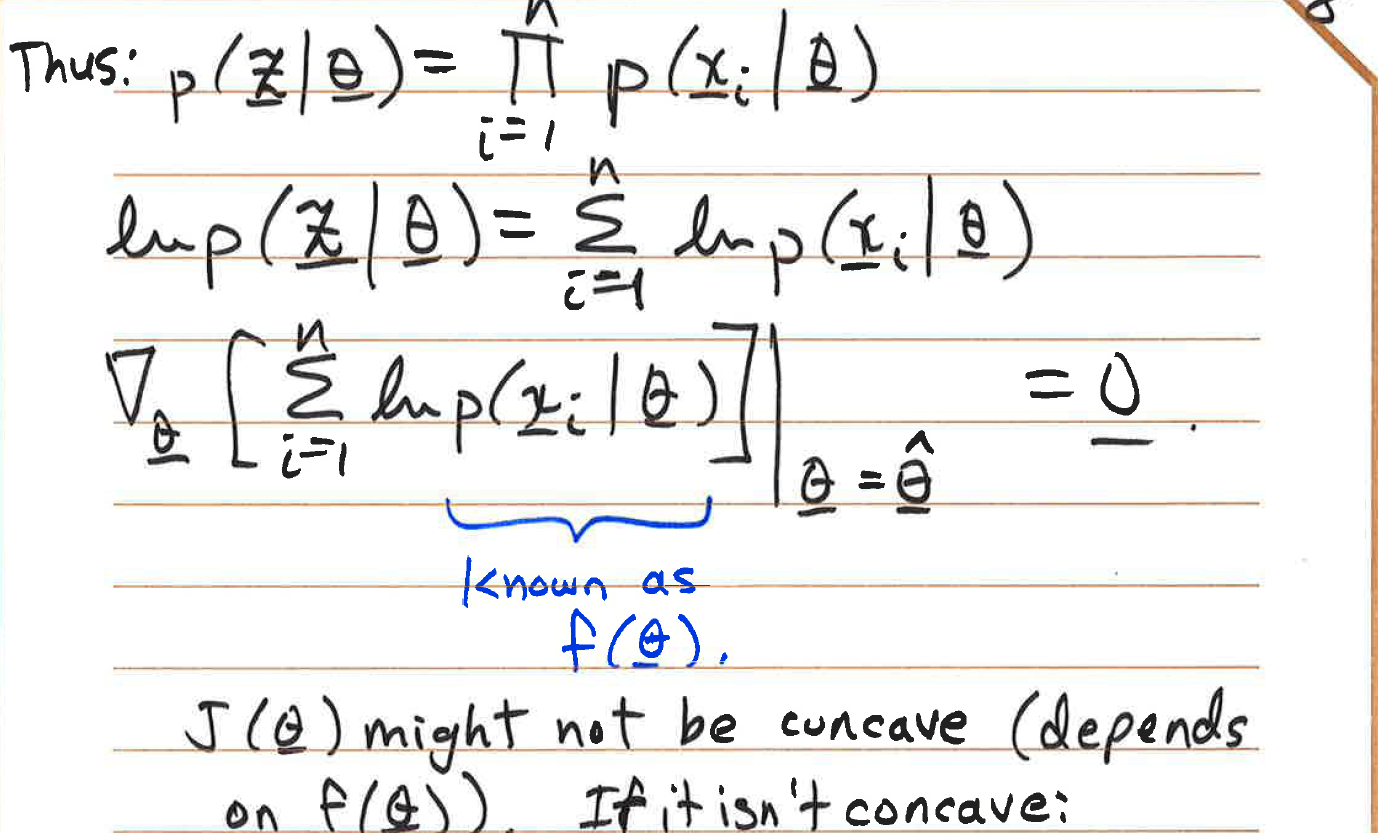 Thus: p(z|θ) = ∏_{i=1}^{n} p(x_i|θ)
ln p(z|θ) = Σ_{i=1}^{n} ln p(x_i|θ)
∇_θ [Σ_{i=1}^{n} ln p(x_i|θ)]|_{θ=θ̂} = 0.
known as
f(θ).
J(θ) might not be concave (depends
on f(θ)). If it isn't concave: